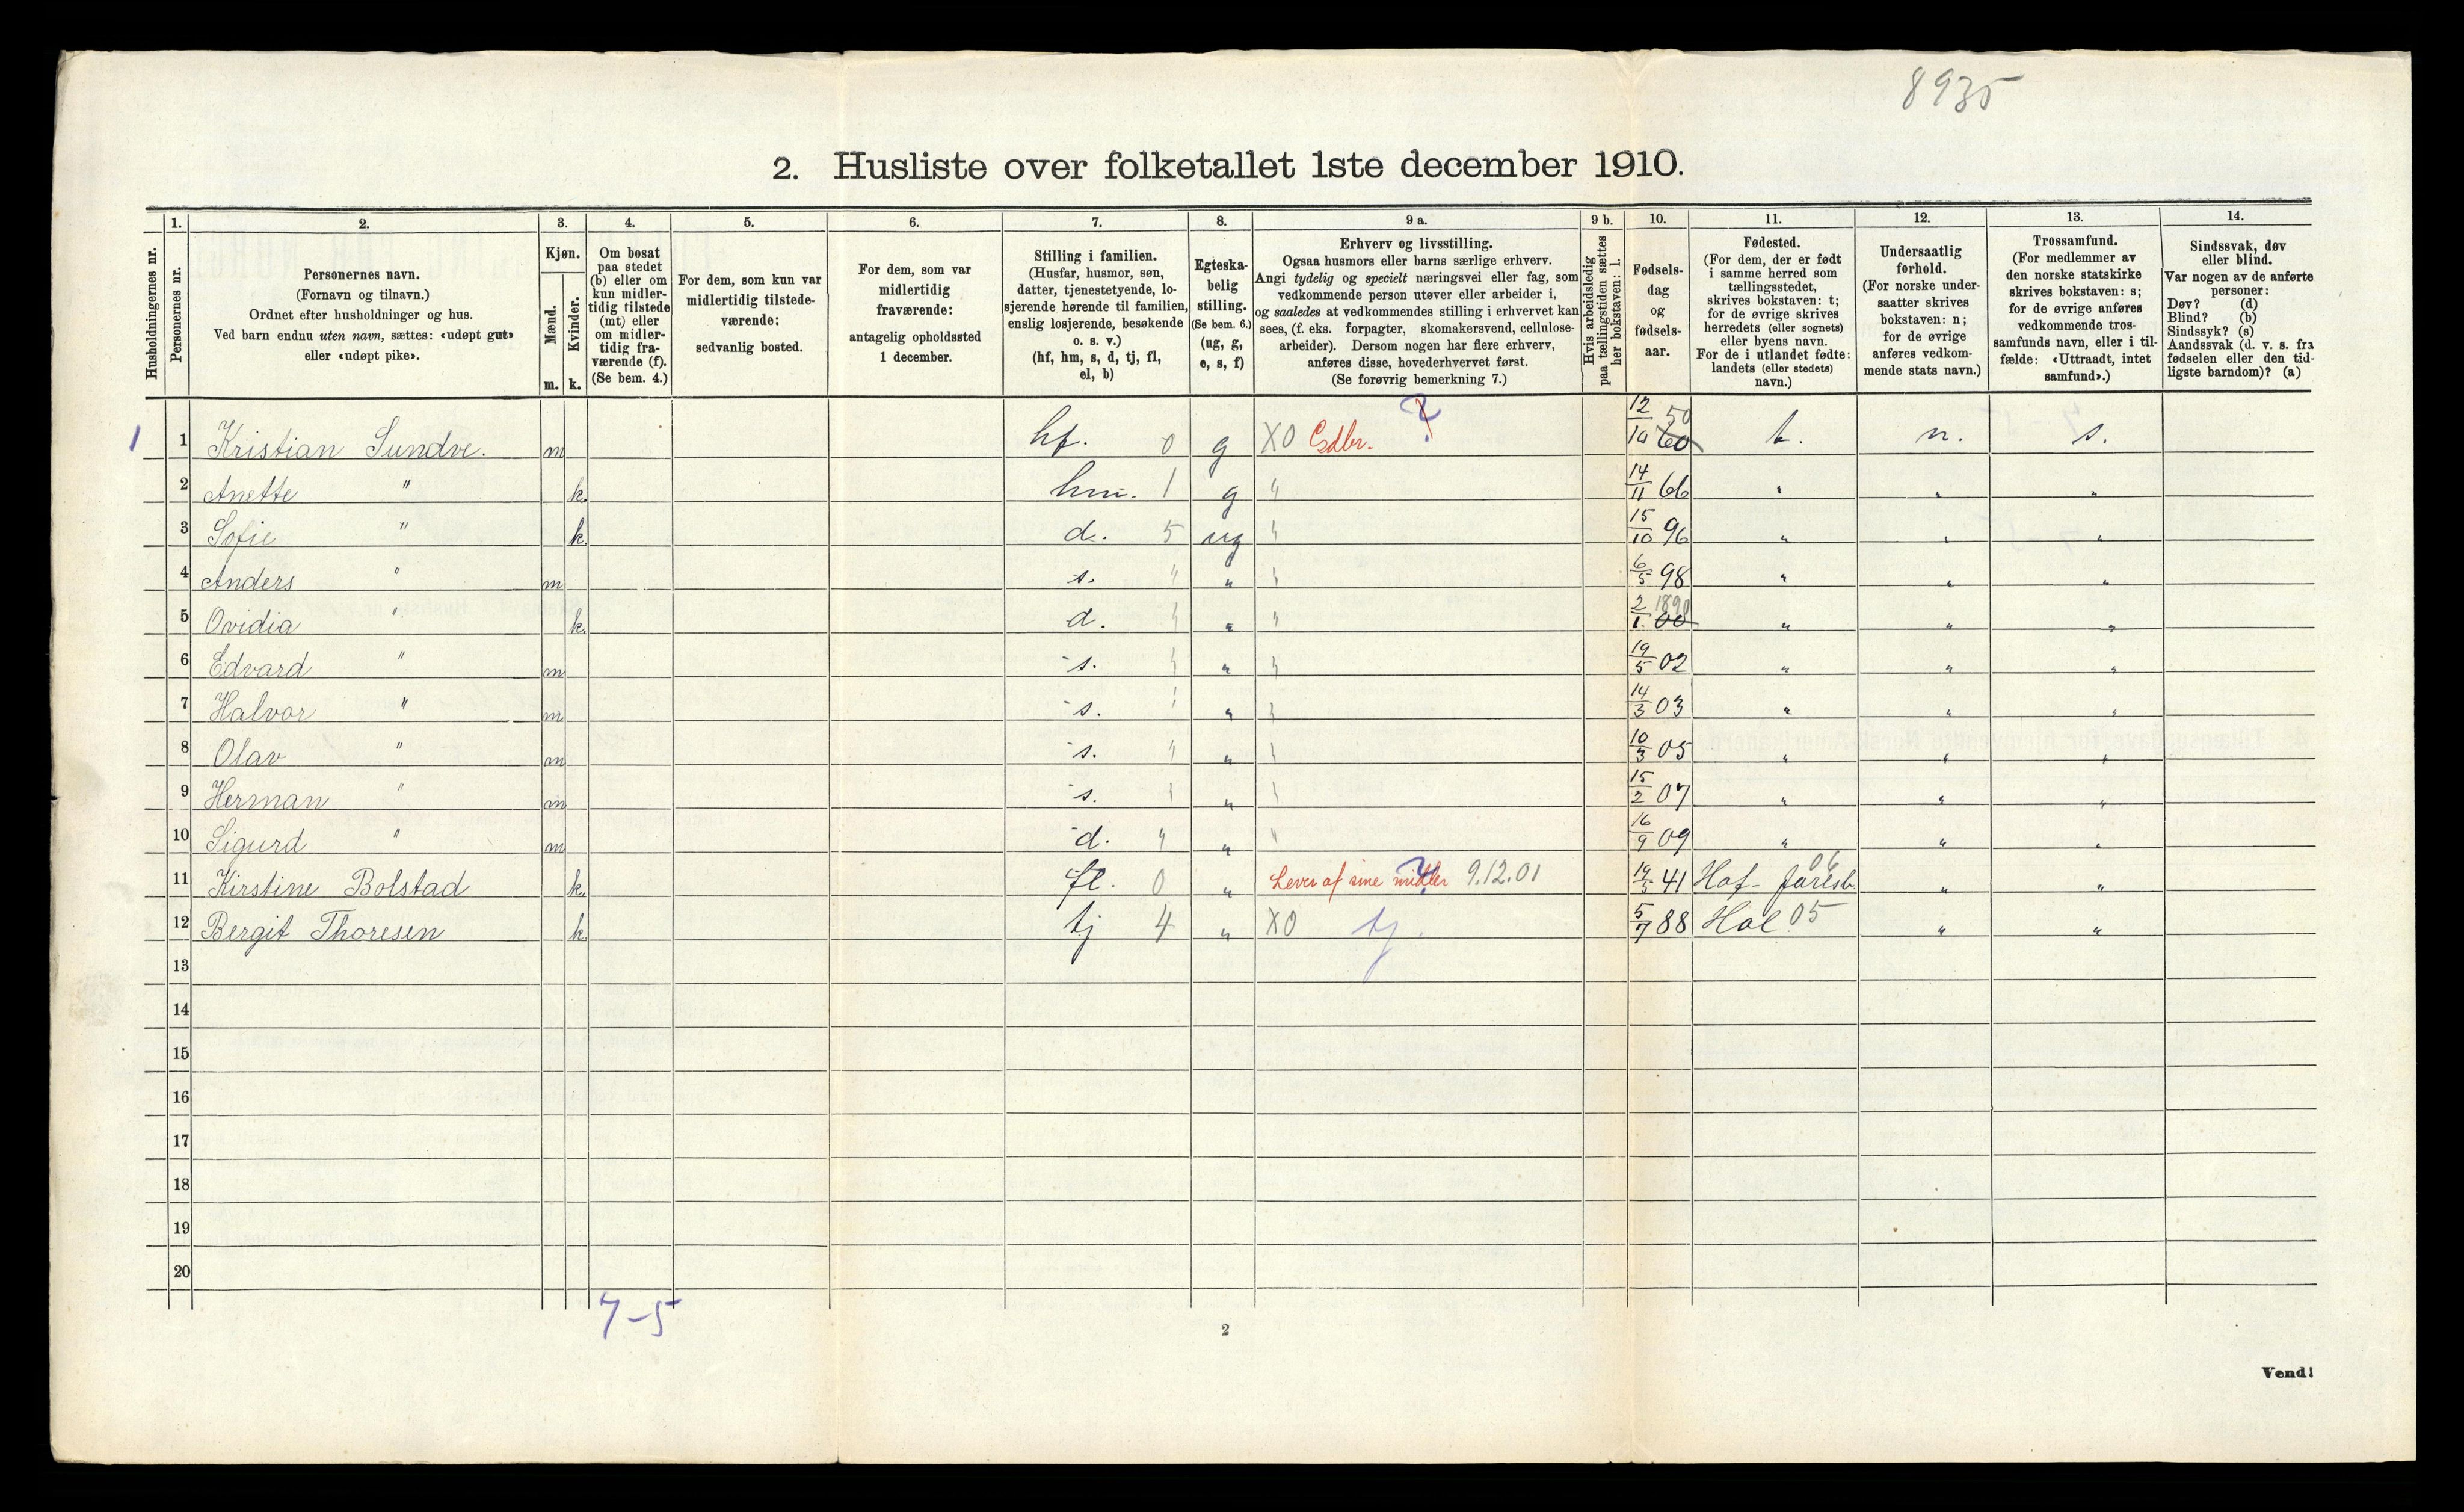 8935
2. Husliste over folketallet 1ste december 1910.
Husholdningernes nr.
1. Personernes nr.
2. Personernes navn.
(Fornavn og tilnavn.)
Ordnet efter husholdninger og hus.
Ved barn endnu uten navn, sættes: «udøpt gut»
eller «udøpt pike».
3. Kjøn.
Mænd. m.
Kvinder. k.
4. Om bosat
paa stedet
(b) eller om
kun midler-
tidig tilstede
(mt) eller
om midler-
tidig fra-
værende (f).
(Se bem. 4.)
5. For dem, som kun var
midlertidig tilstede-
værende:
sedvanlig bosted.
6. For dem, som var
midlertidig
fraværende:
antagelig opholdssted
1 december.
7. Stilling i familien.
(Husfar, husmor, søn,
datter, tjenestetyende, lo-
sjerende hørende til familien,
enslig losjerende, besøkende
o. s. v.)
(hf, hm, s, d, tj, fl,
el, b)
8. Egteska-
belig
stilling.
(Se bem. 6.)
(ug, g,
e, s, f)
9 a. Erhverv og livsstilling.
Ogsaa husmors eller barns særlige erhverv.
Angi tydelig og specielt næringsvei eller fag, som
vedkommende person utøver eller arbeider i,
og saaledes at vedkommendes stilling i erhvervet kan
sees, (f. eks. forpagter, skomakersvend, cellulose-
arbeider). Dersom nogen har flere erhverv,
anføres disse, hovederhvervet først.
(Se forøvrig bemerkning 7.)
9 b. Hvis arbeidsledig
paa tællingstiden sættes
her bokstaven: l.
10. Fødsels-
dag
og
fødsels-
aar.
11. Fødested.
(For dem, der er født
i samme herred som
tællingsstedet,
skrives bokstaven: t;
for de øvrige skrives
herredets (eller sognets)
eller byens navn.
For de i utlandet fødte:
landets (eller stedets)
navn.)
12. Undersaatlig
forhold.
(For norske under-
saatter skrives
bokstaven: n;
for de øvrige
anføres vedkom-
mende stats navn.)
13. Trossamfund.
(For medlemmer av
den norske statskirke
skrives bokstaven: s;
for de øvrige anføres
vedkommende tros-
samfunds navn, eller i til-
fælde: «Uttraadt, intet
samfund».)
14. Sindssvak, døv
eller blind.
Var nogen av de anførte
personer:
Døv? (d)
Blind? (b)
Sindssyk? (s)
Aandssvak (d. v. s. fra
fødselen eller den tid-
ligste barndom)? (a)
1 1 Kristian Sundre. m hf. 0 g X0 Gdbr. ? 12/10 60 50 t. n. s.
2 Anette " k. hm. 1 g " 14/11 66 " " "
3 Sofie " k d. 5 ug " 15/10 96 " " "
4 Anders " m s. " " " 6/5 98 " " "
5 Ovidia " k. d. " " " 2/1 00 1890 " " "
6 Edvard " m s. " " " 19/5 02 " " "
7 Halvor " m s. " " " 14/3 03 " " "
8 Olav " m s. " " " 10/3 05 " " "
9 Herman " m s. " " " 15/2 07 " " "
10 Sigurd " m d. " " " 16/9 09 " " "
11 Kirstine Bolstad k. fl. 0 " Lever af sine midler ? 9.12.01 19/5 41 Hof- Jarlsb 06 " "
12 Bergit Thoresen k tj 4 " X0 tj. 5/7 88 Hol 05 " "
13
14
15
16
17
18
19
20
7-5
2
Vend!